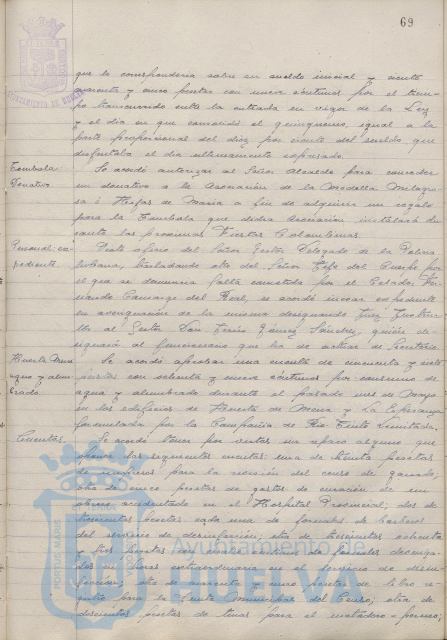 69
que le correspondería sobre su sueldo inicial y ciento
cuarenta y cinco pesetas con nueve céntimos por el tiem-
po transcurrido entre la entrada en vigor de la Ley
y el día en que cumplió el quinquenio, igual a la
parte proporcional del diez por ciento del sueldo, que
disfrutaba el día últimamente expresado.
Tombola
Donativo
Se acordó autorizar al Señor Alcalde para conceder
un donativo a la Asociación de la Medalla Milagro-
sa e Hijas de María a fin de adquirir un regalo
para la Tombola que dicha Asociación instalará du-
rante las próximas Fiestas Colombinas.
Personal: ex-
pediente
oficio del Señor Gestor Delegado de la Policía
Urbana, trasladando otro del Señor Jefe del Cuerpo por
el que se denuncia falta cometida por el Celador Fer-
nando Camargo del Real, se acordó incoar expediente
en averiguación de la misma designando Juez Instruc-
tor al Gestor Don Gómez Sánchez, quién de-
signará al funcionario que ha de actuar de Secretario.
Huerta Mena
agua y alum-
brado
Se acordó aprobar una cuenta de cincuenta y siete
pesetas con ochenta y nueve céntimos por consumo de
agua y alumbrado durante el pasado mes de Mayo
en los edificios de Huerta de Mena y La Esperanza
formulada por la Compañía de Rio Tinto Limitada.
Cuentas.
Se acordó tener por vistas sin reparo alguno que
oponer las siguientes cuentas: una de treinta pesetas
de impresos para la sección del censo de ganado,
otra de cinco pesetas de gastos de curación de un
obrero accidentado en el Hospital Provincial; dos de
trescientas pesetas cada una de jornales de barberos
del servicio de desinfección; otra de trescientas ochenta
y dos pesetas con cinco céntimos de jornales devenga-
dos en horas extraordinarias en el servicio de desin-
fección; otra de cuarenta y cinco pesetas de libro re-
gistro para la Junta Municipal del Censo; otra de
doscientas pesetas de tinas para el matadero porcino;
AYUNTAMIENTO DE HUELVA
Ayuntamiento de
HUELVA
PORTUS MARIS